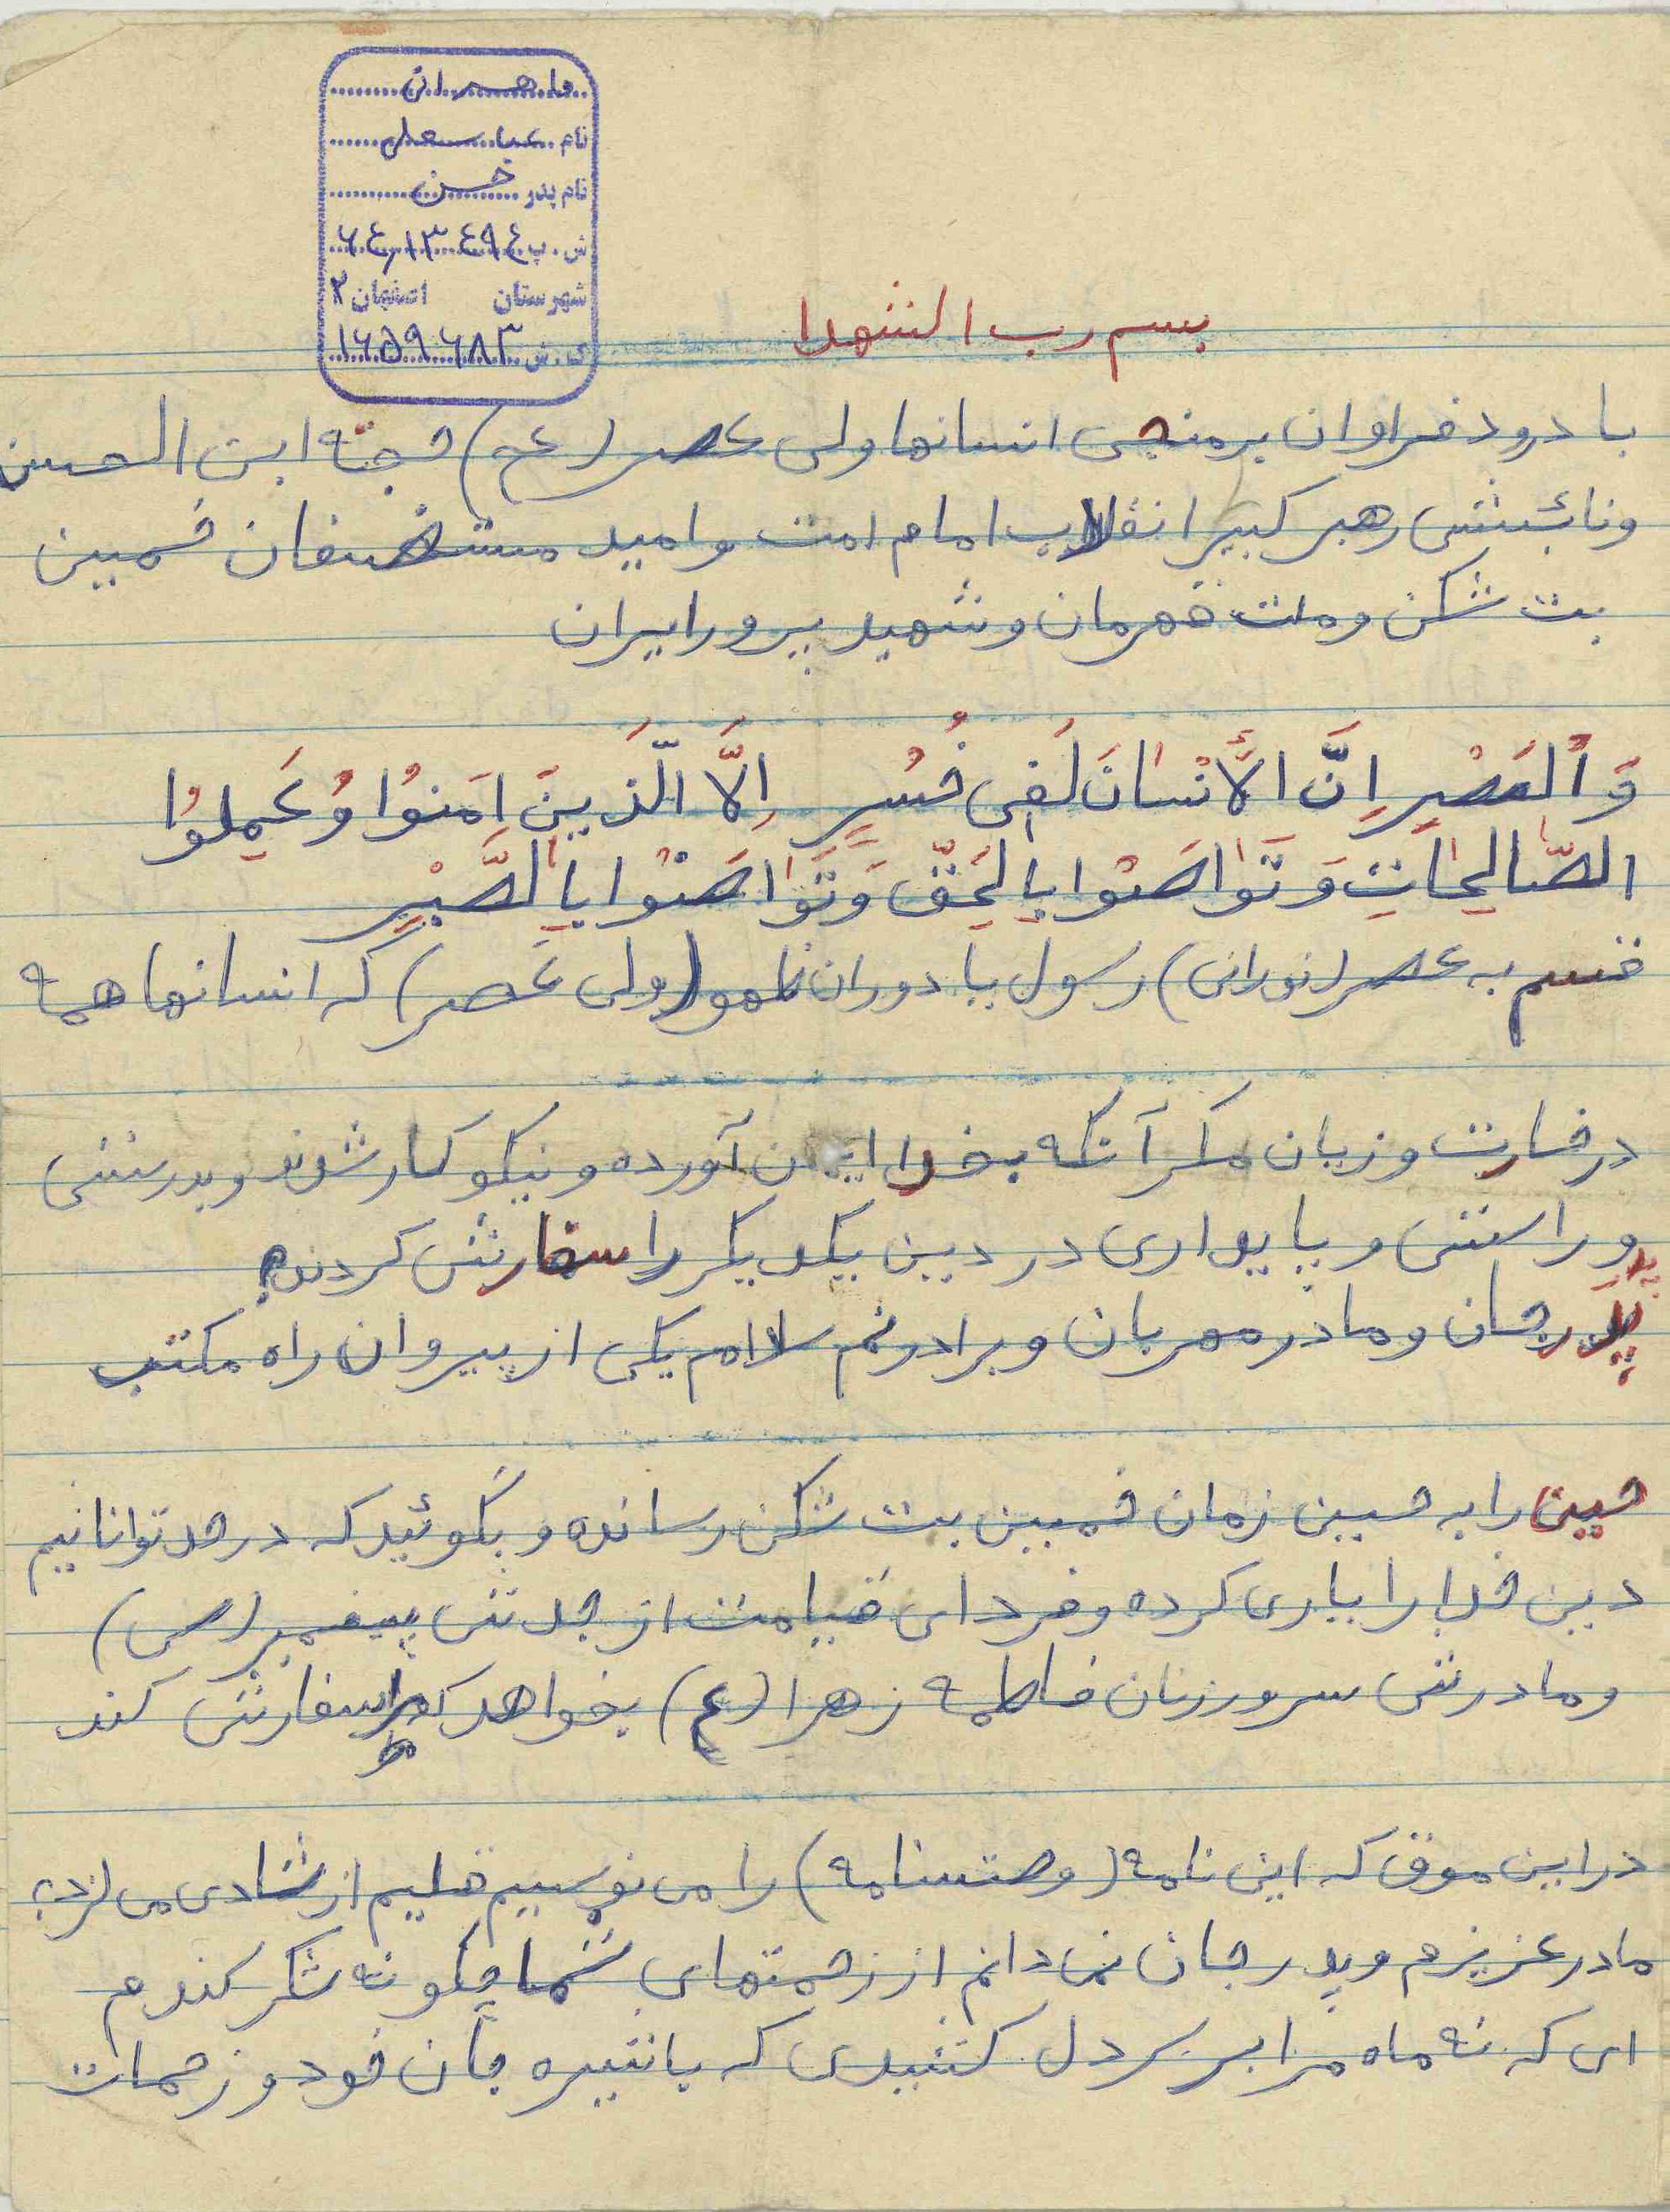 ماهران
نام عباسعلی
نام پدر حسن
ش.پ ۶۴۱۳۴۹۴
شهرستان اصفهان ۲
ک.ش ۱۶۵۹۶۸۳
بسم رب الشهدا
با درود فراوان بر منجی انسانها ولی عصر (عج) حجته ابن الحسن
و نائبش رهبر کبیر انقلاب امام امت و امید مستضعفان خمینی
بت شکن و ملت قهرمان و شهید پرور ایران
وَالْعَصْرِ اِنَّ الْأَنْسانَ لَفی خُسْرٍ اِلَّا الَّذینَ امَنوُا وَ عَمِلوُا
الصّالِحاتِ وَ تَواصَوْا بِالْحَقِّ وَ تَواصَوْا بِالصَّبْرِ
قسم به عصر (نورانی) رسول یا دوران ظهور (ولی عصر) که انسانها همه
در خسارت و زیان مگر آنکه بخدا ایمان آورده و نیکو کار شوند و بدرستی
و راستی و پایداری در دین یکدیگر را سفارش کردند
پدرجان و مادر مهربان و برادرنم سلام یکی از پیروان راه مکتب
حسین را به حسین زمان خمینی بت شکن رسانده و بگوئید که در حد توانائیم
دین خدا را یاری کرده و فردای قیامت از جدش پیغمبر (ص)
و مادرش سرور زنان فاطمه زهرا (ع) بخواهد که مرا سفارش کند
در این موقع که این نامه (وصتسنامه) را می نویسیم قلبم از شادی می لرزد
مادر عزیزم و پدرجان نمی دانم از زحمتهای شما چگونه شکر کندم
ای که نه ماه مرا بر سر دل کشیدی که با شیره جان خود و زحمات